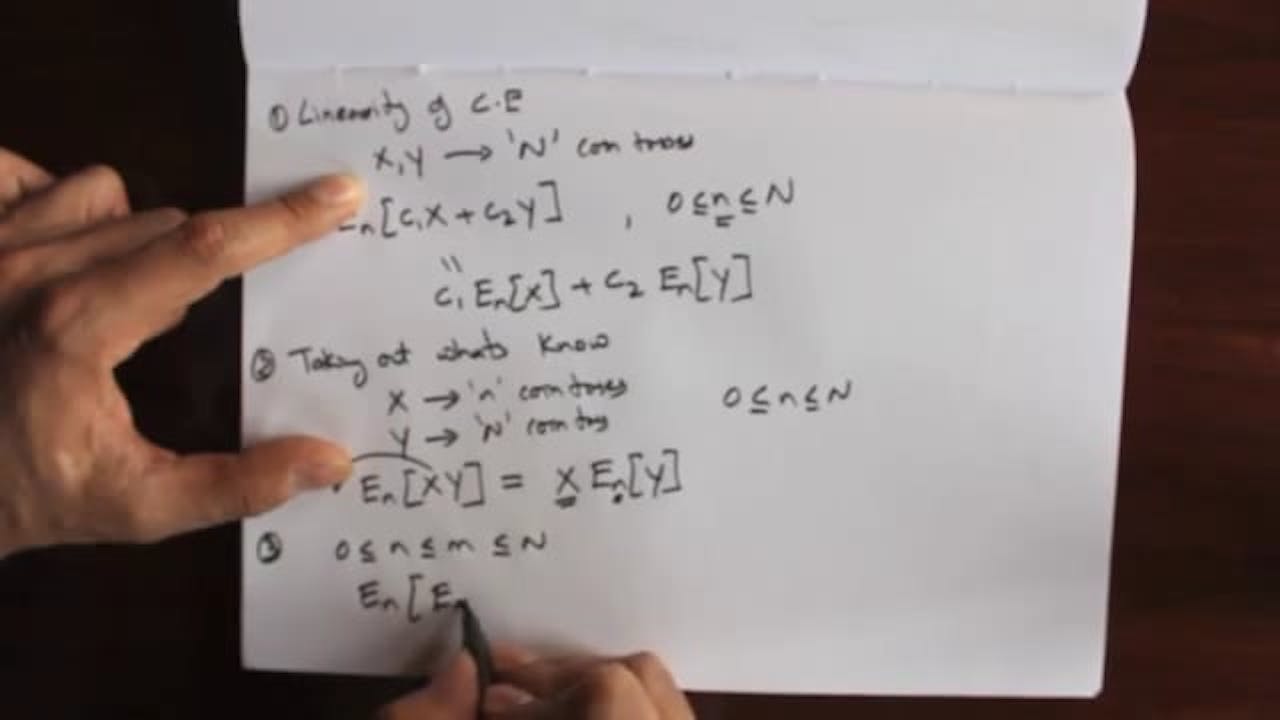 ① Linearity of C.E
X,Y → 'N' coin tosses
En[C₁X + C₂Y] , 0 ≤ n ≤ N
"
C₁ En[X] + C₂ En[Y]
② Taking out whats know
X → 'n' coin tosses 0 ≤ n ≤ N
Y → 'N' coin tos
En[XY] = X En[Y]
③ 0 ≤ n ≤ m ≤ N
En[E